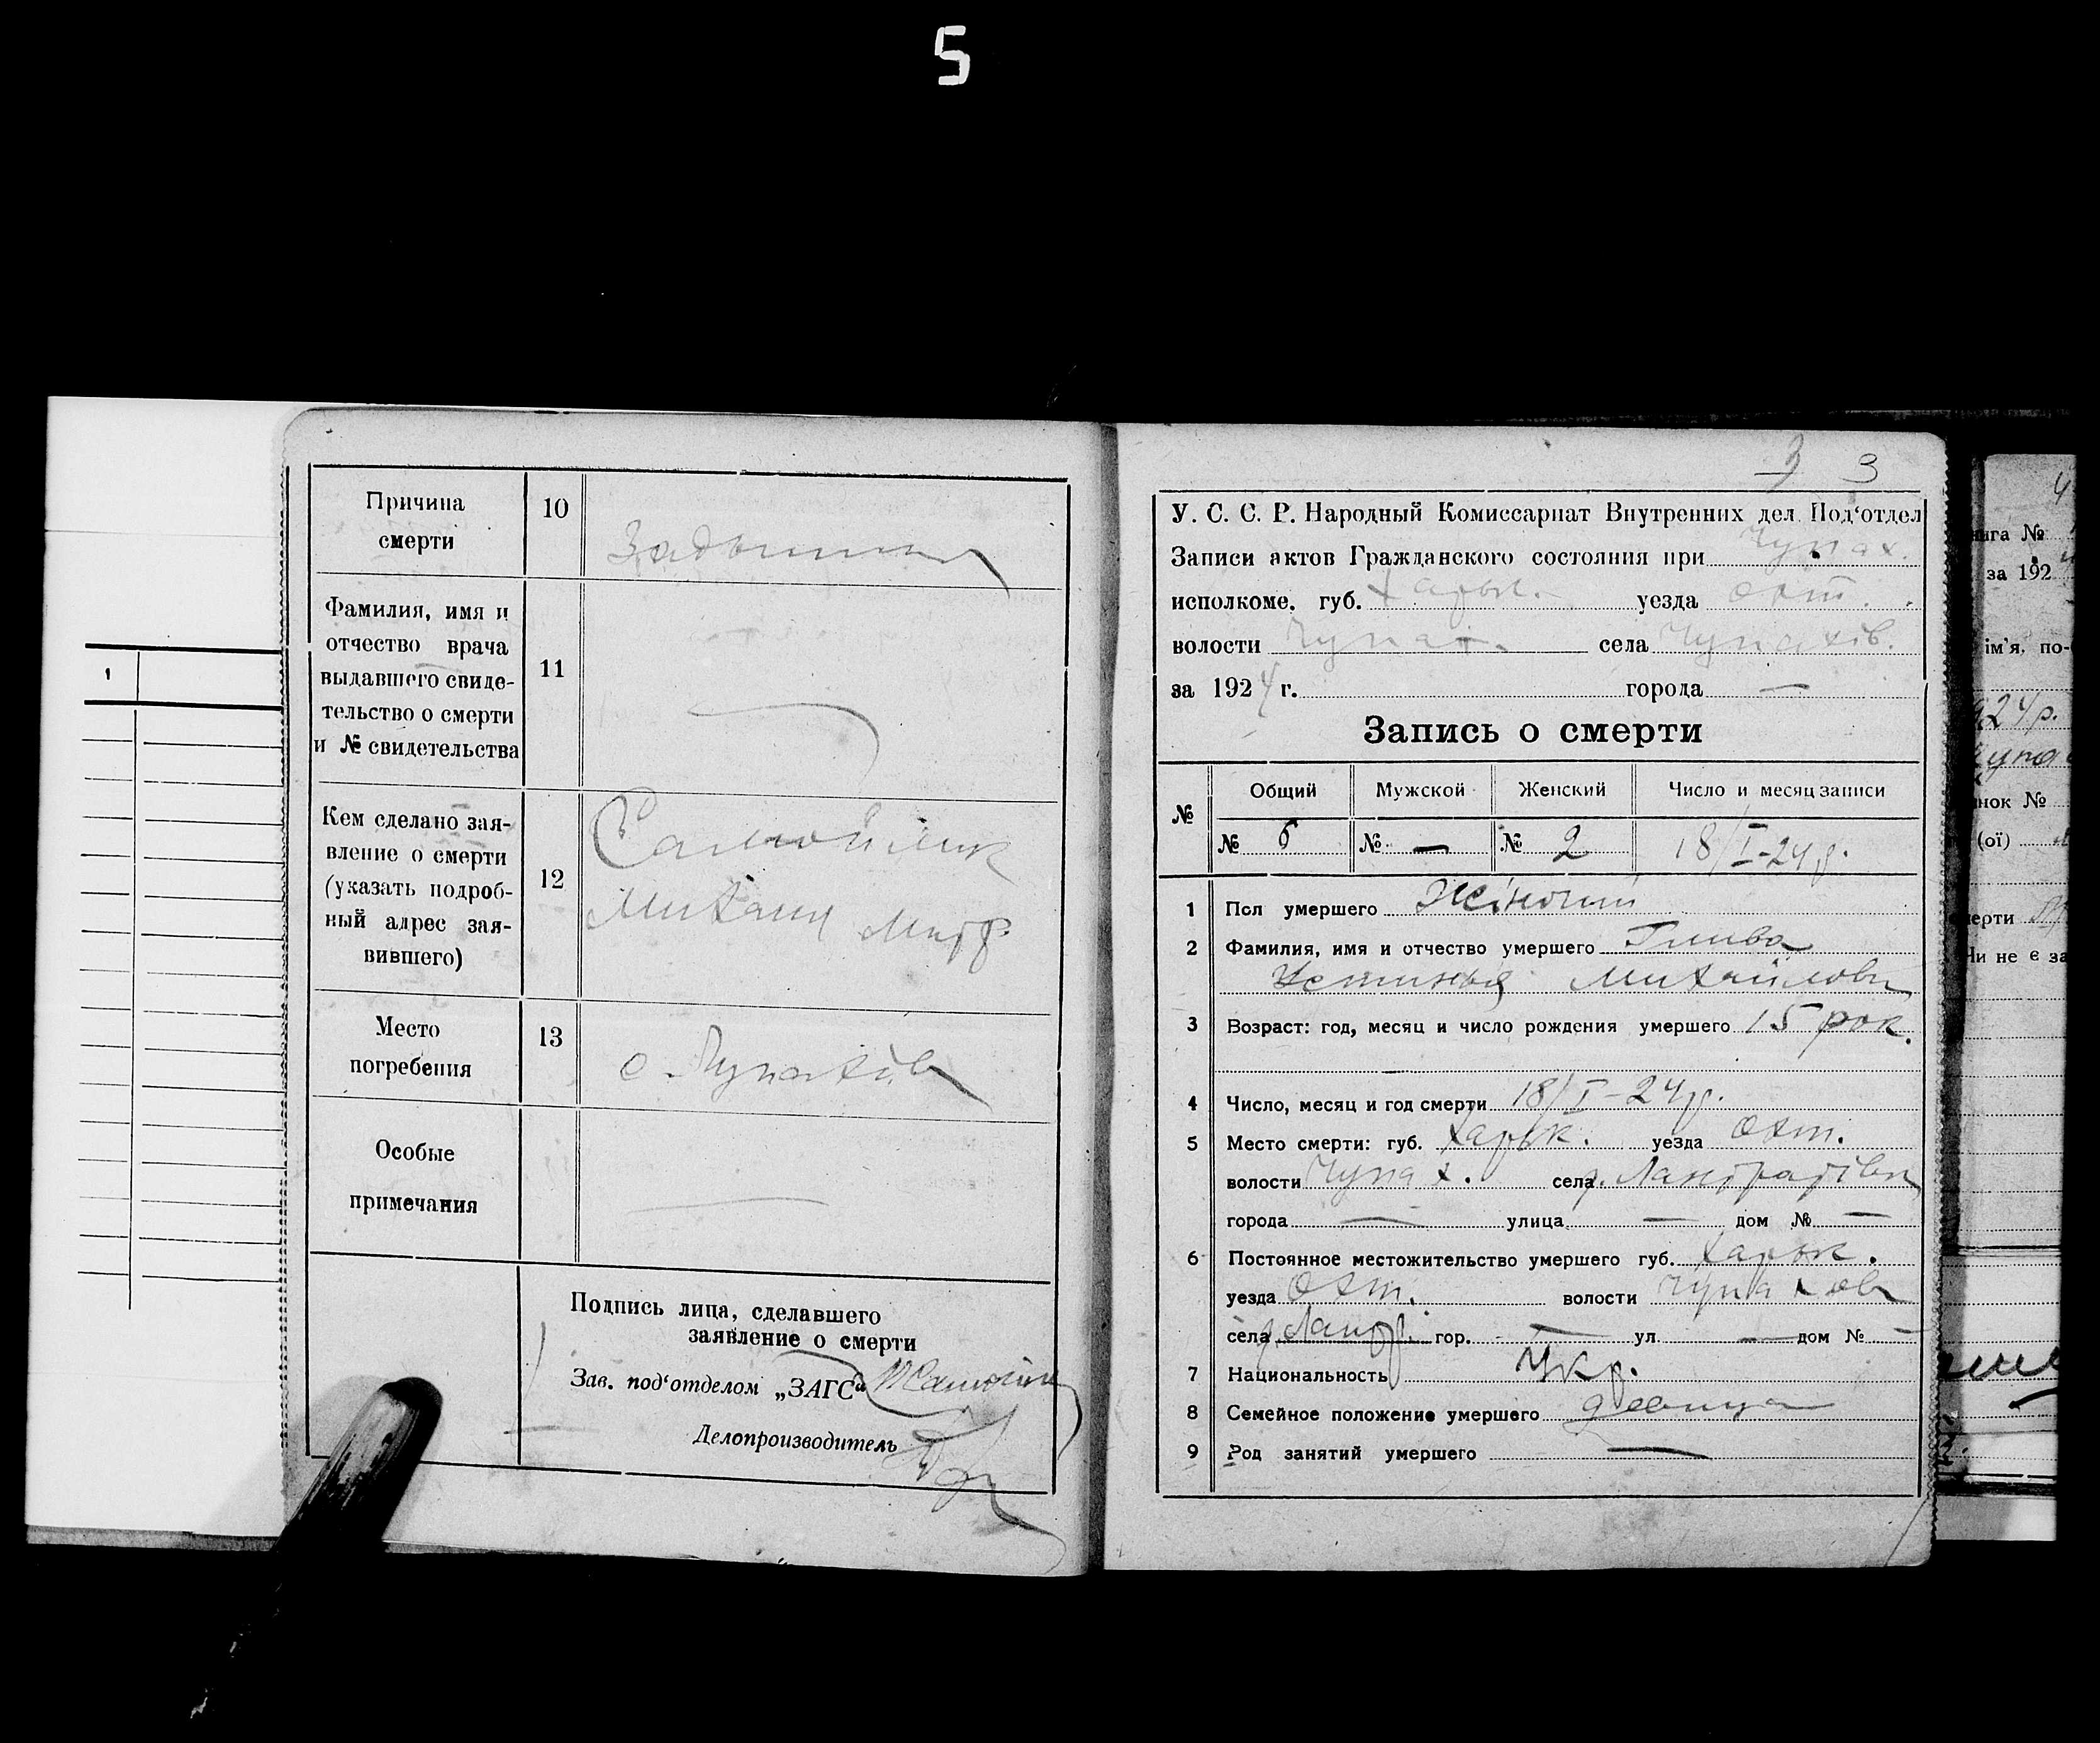 5
1
Причина
смерти
10
Фамилия, имя и
отчество врача
выдавшего свиде-
тельство о смерти
и № свидетельства
11
Кем сделано зая-
вление о смерти
(указать подроб-
ный адрес зая-
вившего)
12
Самойлик
Михаил
Место
погребения
13
с.
Особые
примечания
Подпись лица, сделавшего
заявление о смерти
Зав. под‘отделом „ЗАГС“
Делопроизводитель
3 3
У. С. С. Р. Народный Комиссариат Внутренних дел Под‘отдел
Записи актов Гражданского состояния при Чупах.
исполкоме. губ. Харьк. уезда Охт.
волости Чупах. села Чупахів.
за 1924 г. города —
Запись о смерти
№ Общий Мужской Женский Число и месяц записи
№ 6 № — № 2 18/I-24р.
1 Пол умершего Жіночий
2 Фамилия, имя и отчество умершего
Устинья Михайловн
3 Возраст: год, месяц и число рождения умершего 15 рок.
4 Число, месяц и год смерти 18/I-24р.
5 Место смерти: губ. Харьк. уезда Охт.
волости Чупах. села
города — улица — дом № —
6 Постоянное местожительство умершего губ. Харьк.
уезда Охт. волости Чупахов
села гор. — ул — дом № —
7 Национальность Укр.
8 Семейное положение умершего девица
9 Род занятий умершего —
4
нига №
за 192
ім’я, по-
924р.
нок №
(ої)
мерти
Чи не є за